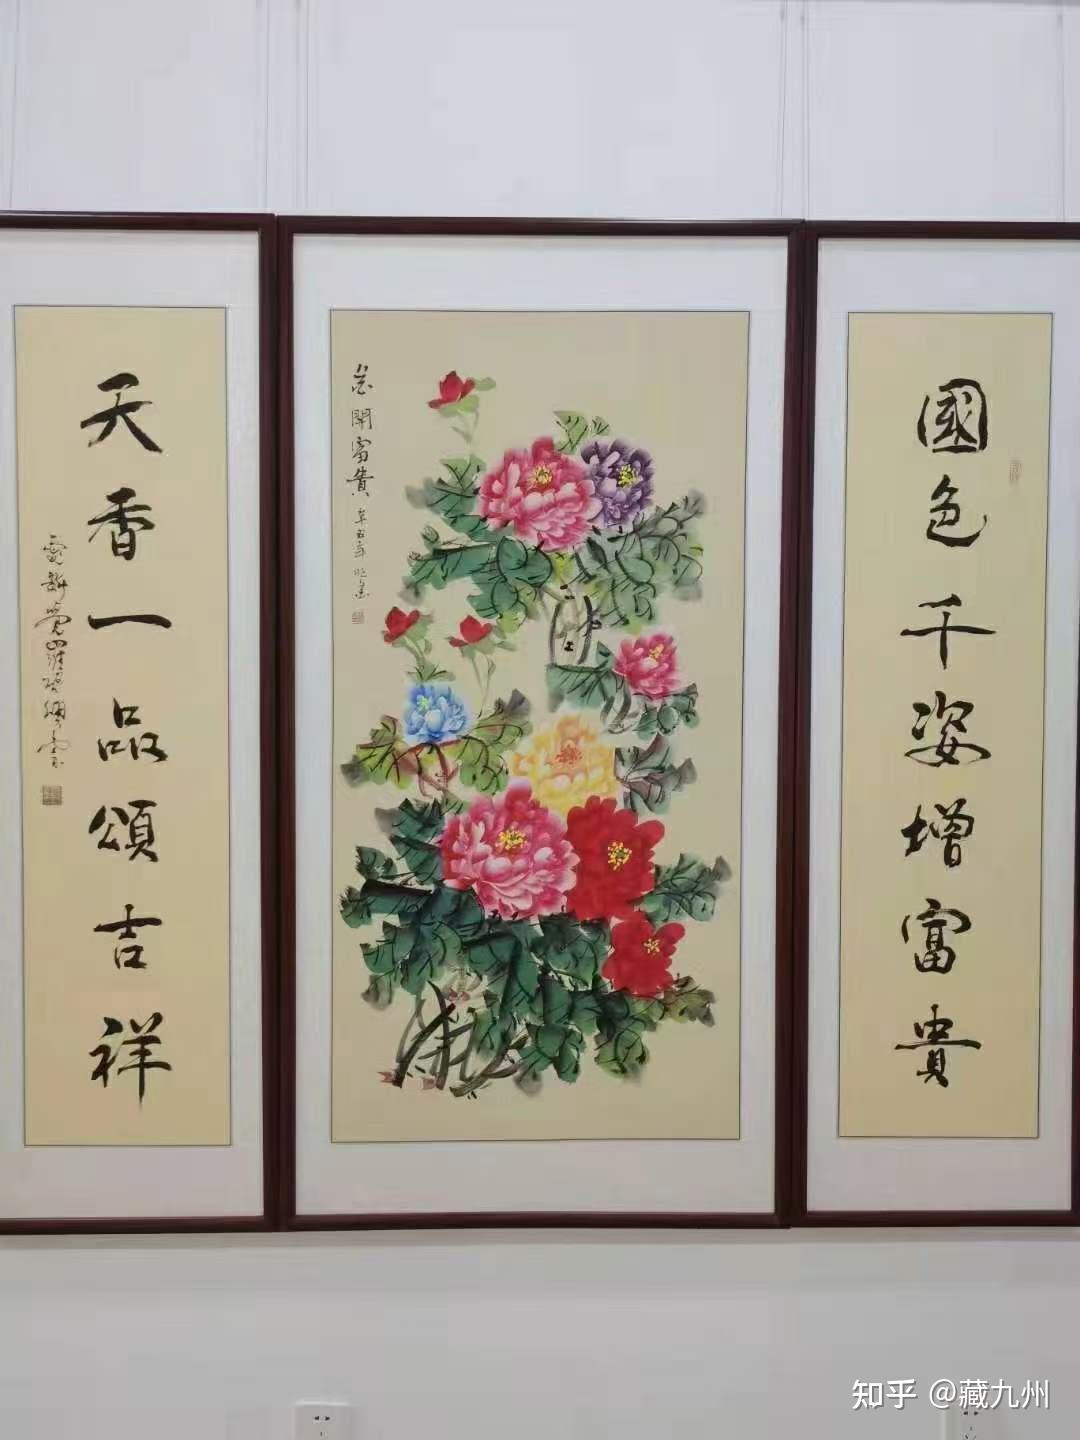 國色千姿增富貴
花開富貴
辛丑年
天香一品頌吉祥
知乎 @藏九州